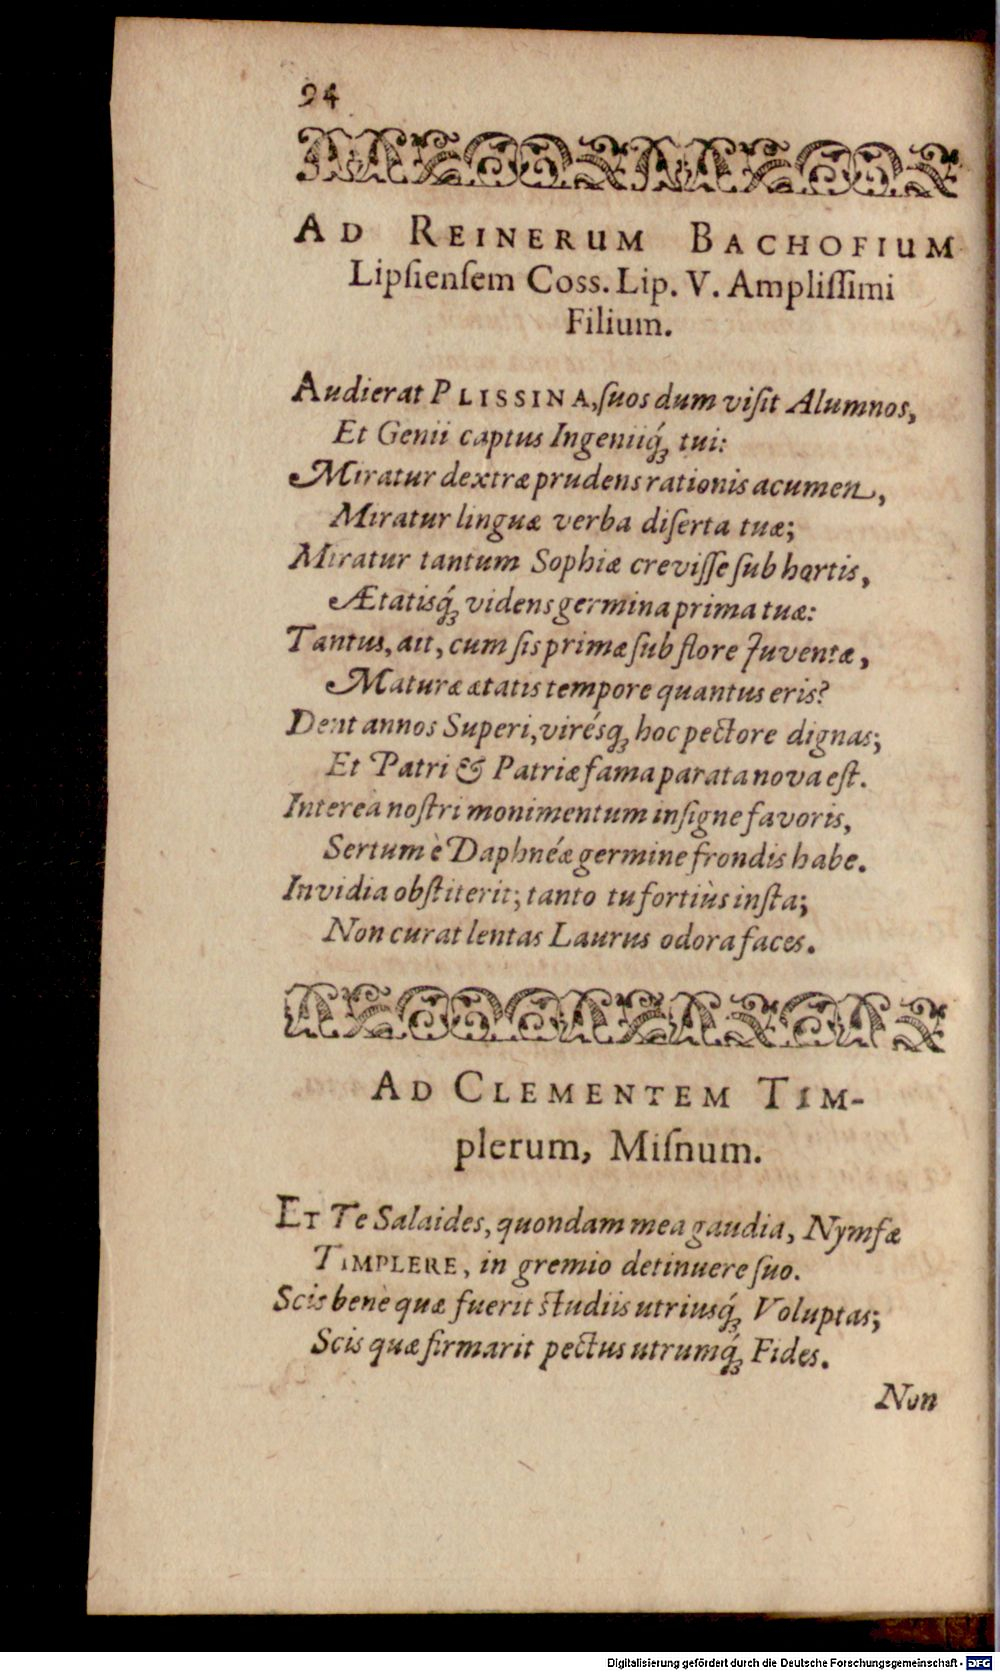 94
AD REINERUM BACHOFIUM
Lipſienſem Coss. Lip. V. Ampliſſimi
Filium.
Audierat PLISSINA, ſuos dum viſit Alumnos,
Et Genii captus Ingeniiq́ꝫ tui:
Miratur dextræ prudens rationis acumen,
Miratur linguæ verba diſerta tuæ;
Miratur tantum Sophiæ creviſſe ſub hortis,
Ætatisq́ꝫ videns germina prima tuæ:
Tantus, ait, cum ſis primæ ſub flore Juventæ,
Maturæ ætatis tempore quantus eris?
Dent annos Superi, virésqꝫ hoc pectore dignas;
Et Patri & Patriæ fama parata nova eſt.
Intereà noſtri monimentum inſigne favoris,
Sertum è Daphnéæ germine frondis habe.
Invidia obſtiterit; tanto tu fortiùs inſta;
Non curat lentas Laurus odora faces.
AD CLEMENTEM TIM-
plerum, Miſnum.
ET Te Salaides, quondam mea gaudia, Nymfæ
TIMPLERE, in gremio detinuere ſuo.
Scis benè quæ fuerit ſtudiis utriusq́ꝫ Voluptas;
Scis quæ firmarit pectus utrumq́ꝫ Fides.
Non
Digitalisierung gefördert durch die Deutsche Forschungsgemeinschaft - DFG